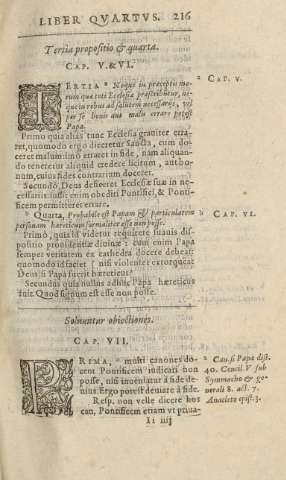 LIBER QVARTVS. 216
Tertia propositio & quarta.
CAP. V. & VI.
TERTIA * Neque in præceptis mo- a CAP. V.
rum quæ toti Ecclesiæ præscribuntur, ne-
que in rebus ad salutem necessariis, vel
per se bonis aut malis errare potest
Papa.
Primo quia aliàs tunc Ecclesia grauiter erra-
ret, quomodo ergo diceretur Sancta, cum do-
ceret malum? imo erraret in fide, nam aliquan-
do teneretur aliquid credere licitum, aut bo-
num, cuius fides contrarium doceret.
Secundò, Deus deficeret Ecclesiæ suæ in ne-
cessariis: iussit enim obediri Pontifici, & Ponti-
ficem permitteret errare.
* Quarta, Probabile est Papam & particularem a CAP. VI.
personam hæreticum formaliter esse non posse.
Primò, quia id videtur requirere suauis dis-
positio prouidentiæ diuinæ: cum enim Papa
semper veritatem ex cathedra docere debeat:
quomodo id faciet? nisi violenter extorqueat
Deus si Papa fuerit hæreticus?
Secundùs quia nullus adhuc Papa hæreticus
fuit. Quod signum est esse non posse.
Soluuntur obiectiones.
CAP. VII.
PRIMA, * multi canones do- a Can. si Papa dist.
cent Pontificem iudicari non 40. Concil. V sub
posse, nisi inueniatur à fide de- Symmacho & ge-
uius. Ergo potest deuiare à fide. nerali 8. act. 7.
Resp. non velle dicere hos Anacleto epist. 3.
can. Pontificem etiam vt priua-
Ii iiij